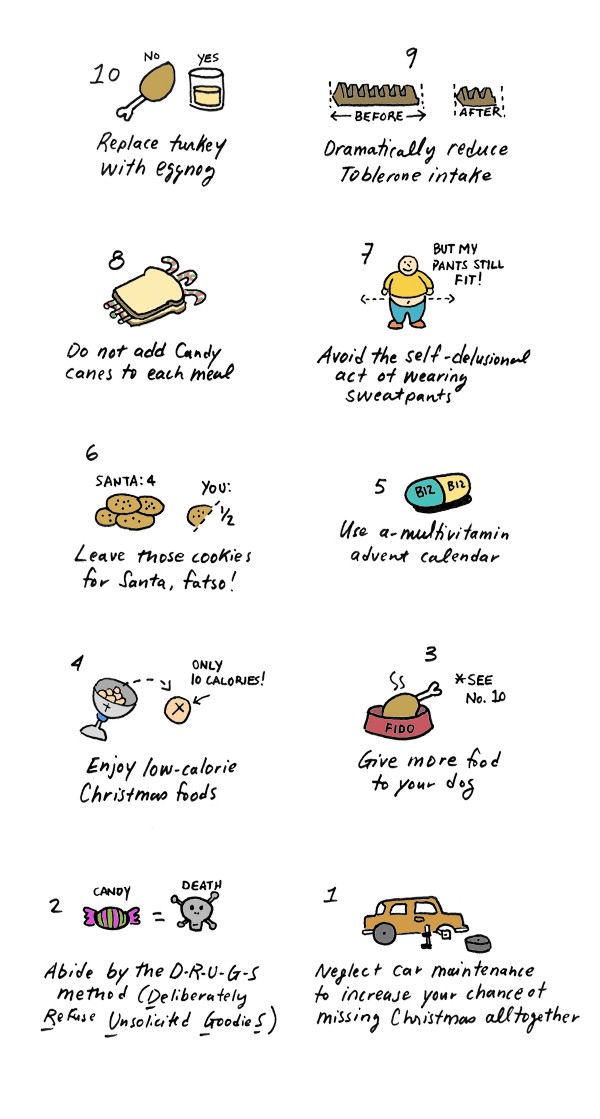 10
NO
YES
Replace turkey
with eggnog
9
BEFORE
AFTER
Dramatically reduce
Toblerone intake
8
Do not add Candy
canes to each meal
7
BUT MY
PANTS STILL
FIT!
Avoid the self-delusional
act of wearing
sweatpants
6
SANTA: 4
YOU:
1/2
Leave those cookies
for Santa, fatso!
5
B12
B12
Use a-multivitamin
advent calendar
4
ONLY
10 CALORIES!
Enjoy low-calorie
Christmas foods
3
*SEE
No. 10
FIDO
Give more food
to your dog
2
CANDY
=
DEATH
Abide by the D-R-U-G-S
method (Deliberately
Refuse Unsolicited Goodies)
1
Neglect car maintenance
to increase your chance of
missing Christmas alltogether